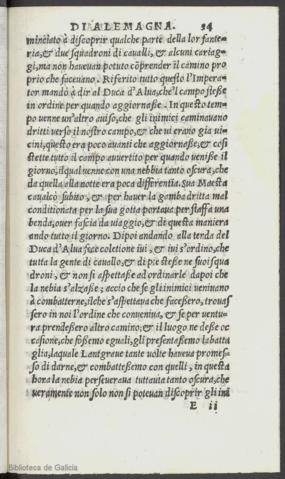 DI ALEMAGNA. 34
minciato à discoprir qualche parte della lor fante-
ria, & due squadroni di caualli, & alcuni cariag-
gi, ma non haueuan potuto cõprender il camino pro
prio che faceuano. Riferito tutto questo l'Impera-
tor mandò à dir al Duca d'Alua, che'l campo stesse
in ordine per quando aggiornasse. In questo tem-
po uenne un'altro auiso, che gli inimici caminauano
dritti uerso il nostro campo, & che ui erano già ui-
cini, questo era poco auanti che aggiornasse, & così
stette tutto il campo auuertito per quando uenisse il
giorno, il qual uenne con una nebbia tanto oscura, che
da quella alla notte era poca differentia. Sua Maestà
caualcò subito, & per hauer la gamba dritta mal
conditionata per la sua gotta portaua per staffa una
benda, ouer fascia da uiaggio, & di questa maniera
andò tutto il giorno. Dipoi andando alla tenda del
Duca d'Alua fece coletione iui, & iui s'ordinò, che
tutta la gente di cauallo, & di piè stesse ne suoi squa
droni, & non si aspettasse ad ordinarle dapoi che
la nebia s'alzasse; accio che se gli inimici ueniuano
à combatterne, ilche s'aspettaua che facessero, trouas
sero in noi l'ordine che conueniua, & se per uentu-
ra prendessero altro camino, & il luogo ne desse oc
casione, che fossemo eguali, gli presentassemo la batta
glia, laquale Lantgraue tante uolte haueua promes-
so di darne, & combattessemo con quelli, in questa
hora la nebia perseueraua tuttauia tanto oscura, che
ueramente non solo non si poteuan discoprir gli ini
E ii
Biblioteca de Galicia